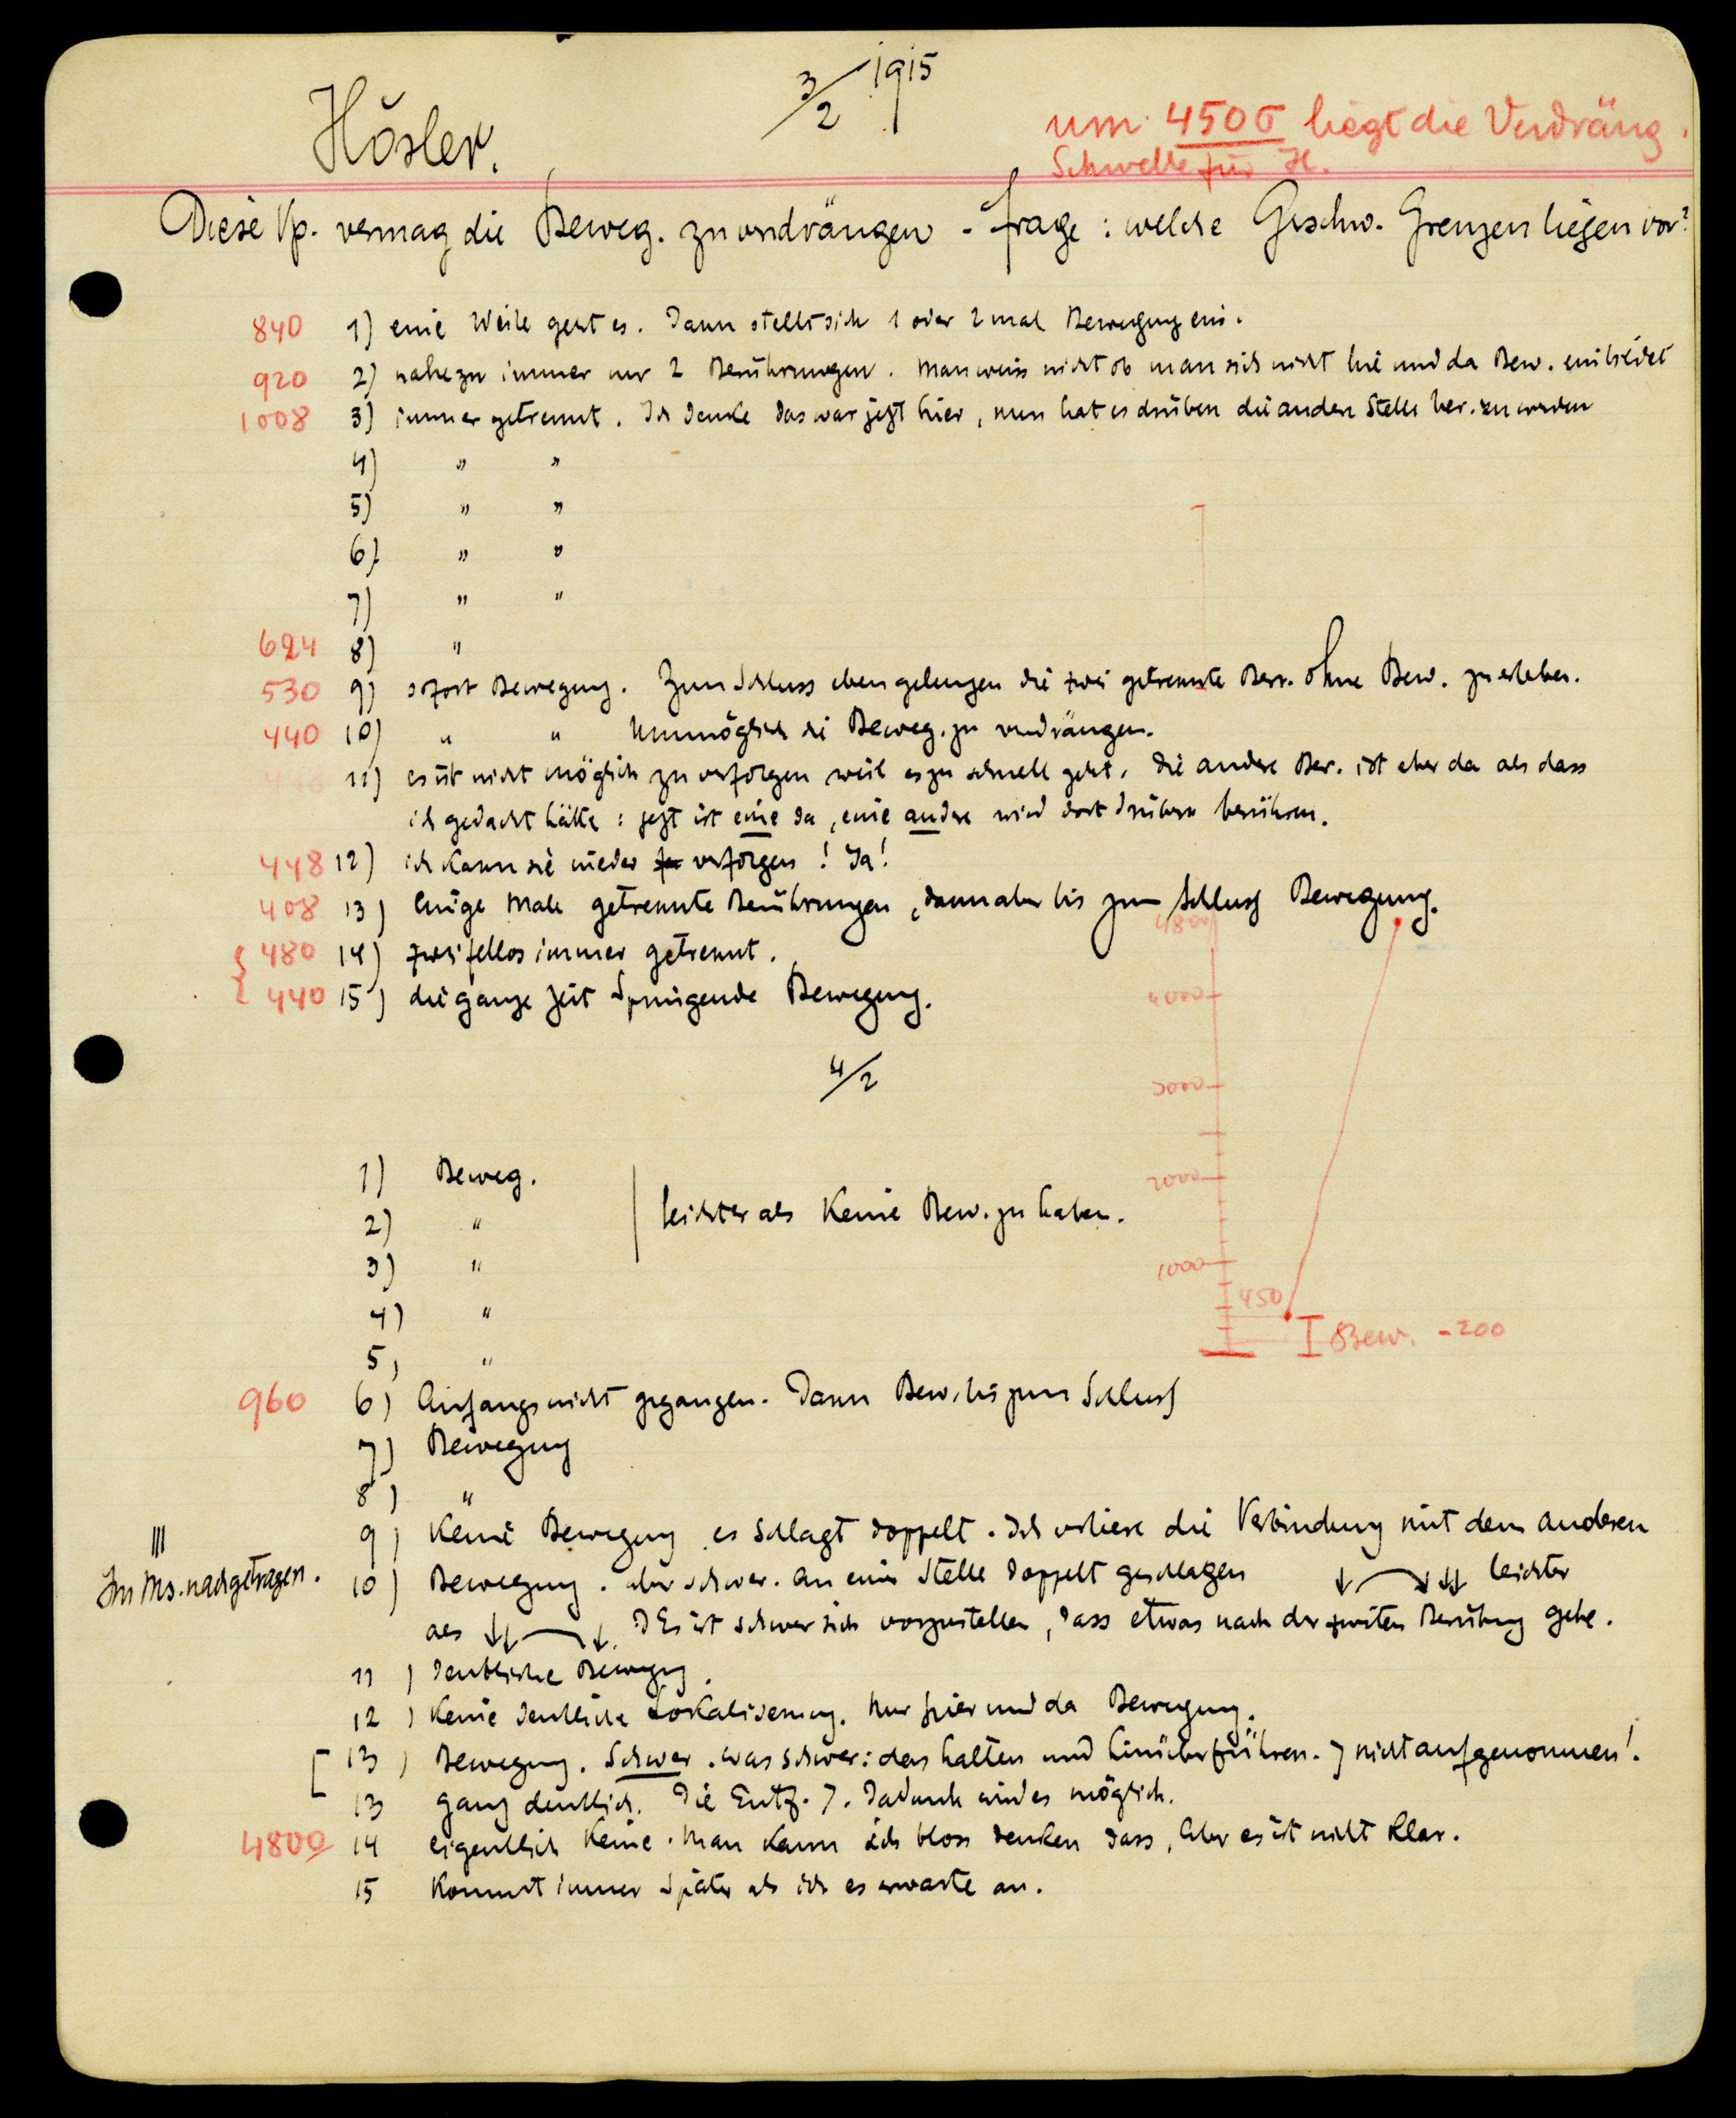 3/2 1915
Hösler.
um 450σ liegt die Verdräng.
Schwelle für H.
Diese Vp. vermag die Beweg. zu verdrängen - Frage: welche Geschw. Grenzen liegen vor?
840 1) eine Weile geht es. Dann stellt sich 1 oder 2 mal Bewegung ein.
920 2) nahezu immer nur 2 Berührungen. Man weiss nicht ob man sich nicht hie und da Bew. einbildet
1008 3) immer getrennt. Ich denke das war jetzt hier, nun hat es drüben die andere Stelle ber. zu werden
4) " "
5) " "
6) " "
7) " "
624 8) "
530 9) sofort Bewegung. Zum Schluss eben gelungen die zwei getrennte Berr. ohne Bew. zu erleben.
440 10) " " Unmöglich die Beweg. zu verdrängen.
448 11) es ist nicht möglich zu verfolgen weil es zu schnell geht. Die andere Ber. ist eher da als dass
ich gedacht hätte: jetzt ist eine da, eine andere wird dort drüben berühren.
448 12) ich kann sie wieder verfolgen! Ja!
408 13) Einige Male getrennte Berührungen, dann aber bis zum Schluss Bewegung.
480 14) zweifellos immer getrennt.
440 15) die ganze Zeit springende Bewegung.
4800
4000
3000
2000
1000
450
I Bew. -200
4/2
1) Beweg.
2) "
leichter als keine Bew. zu haben.
3) "
4) "
5) "
960 6) Anfangs nicht gegangen. Dann Bew. bis zum Schluss
7) Bewegung
8) "
9) Keine Bewegung es schlagt doppelt. Ich verliere die Verbindung mit dem anderen
III
Im Ms. nachgetragen.
10) Bewegung. aber schwer. An einer Stelle doppelt geschlagen ↓ ↓↓↓ leichter
als ↓↓ ↓. Es ist schwer sich vorzustellen, dass etwas nach der zweiten Berührung gehe.
11) deutliche Bewegung.
12) Keine deutliche Lokalisierung. Nur hier und da Bewegung.
13) Bewegung. Schwer. was schwer: das halten und hinüberführen. nicht aufgenommen!
13 ganz deutlich. Die Entf. 7. Dadurch wird es möglich.
4800 14 eigentlich keine. Man kann sich bloss denken dass, aber es ist nicht klar.
15 Kommt immer später als ich es erwarte an.